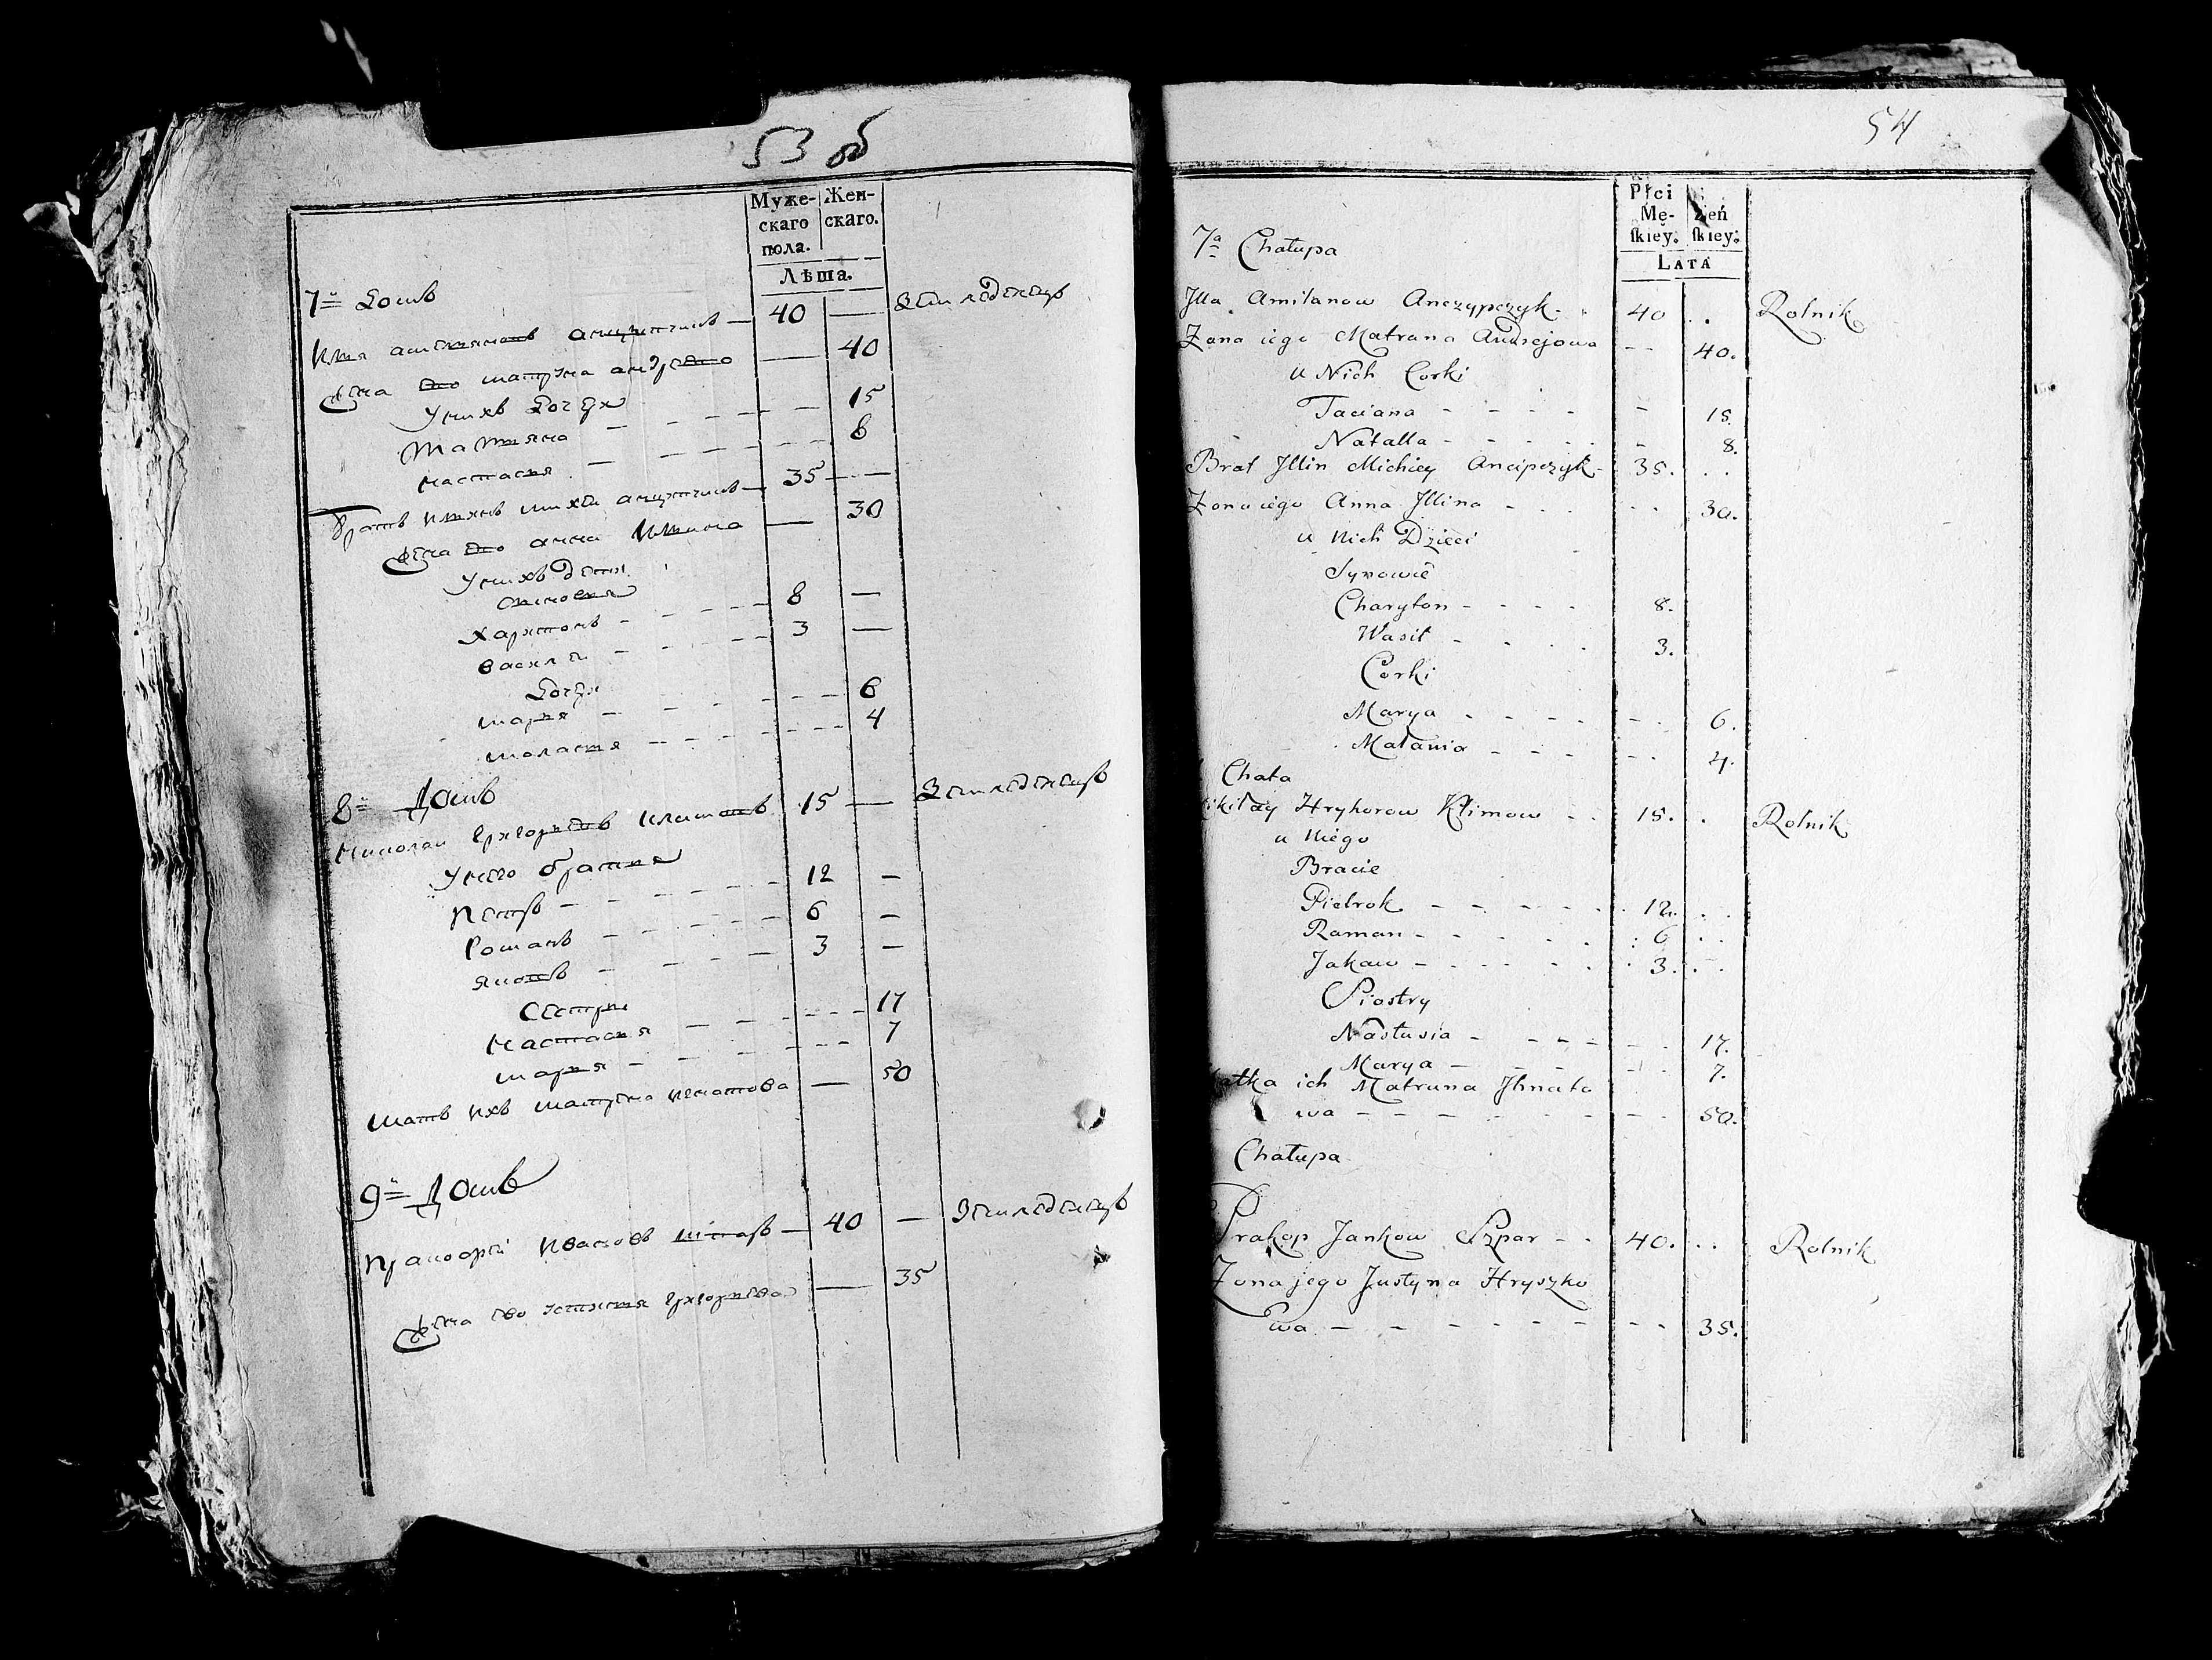 53 об
Муже- Жен-
скаго скаго.
пола.
Лѣта.
7й Домъ
Илья Амельяновъ Анципчикъ — 40 — Земледелецъ
Жена Ево Матруна Андреева — 40
У нихъ Дочери
Татьяна — 15
Настасья — 8
Братъ Ильинъ Михей Анципчикъ — 35 —
Жена Ево Анна Ильина — 30
У нихъ дети
Сыновья
Харитонъ — 8 —
Василей — 3 —
Дочери
Марья — 6
Маланья — 4
8й Домъ
Николай Григорьевъ Климовъ 15 — Земледелецъ
У него братья
Петръ — 12 —
Романъ — 6 —
Яковъ — 3 —
Сестры
Настасья — 17
Марья — 7
Мать ихъ Матруна Игнатова — 50
9й Домъ
Прокофей Ивановъ Шпаръ — 40 — Земледелецъ
Жена ево Устинья Григорьева — 35
54
Płci
Mę- żeń
skiey. skiey.
LATA
7a Chałupa
Jlla Amilanow Anczypczyk 40 . Rolnik
Żona iego Matrana Audrejowa 40.
u Nich Corki
Taciana 15.
Natalla 8.
Brat Jllin Michiey Ancipczyk 35. . .
Żona iego Anna Jllina 30.
u Nich Dzieci
Synowie
Charyton 8.
Wasil 3.
Corki
Marya 6.
Małania 4.
Chata
ikiłay Hryhorow Klimow 15. . Rolnik
u Niego
Bracie
Pietrok 12. . .
Raman 6 . .
Jakaw 3. . .
Siostry
Nastusia 17.
Marya 7.
atka ich Matruna Jhnato
wa 50.
Chałupa
Prakop Jankow Szpar 40. . . Rolnik
Żona jego Justyna Hryszko
wa 35.